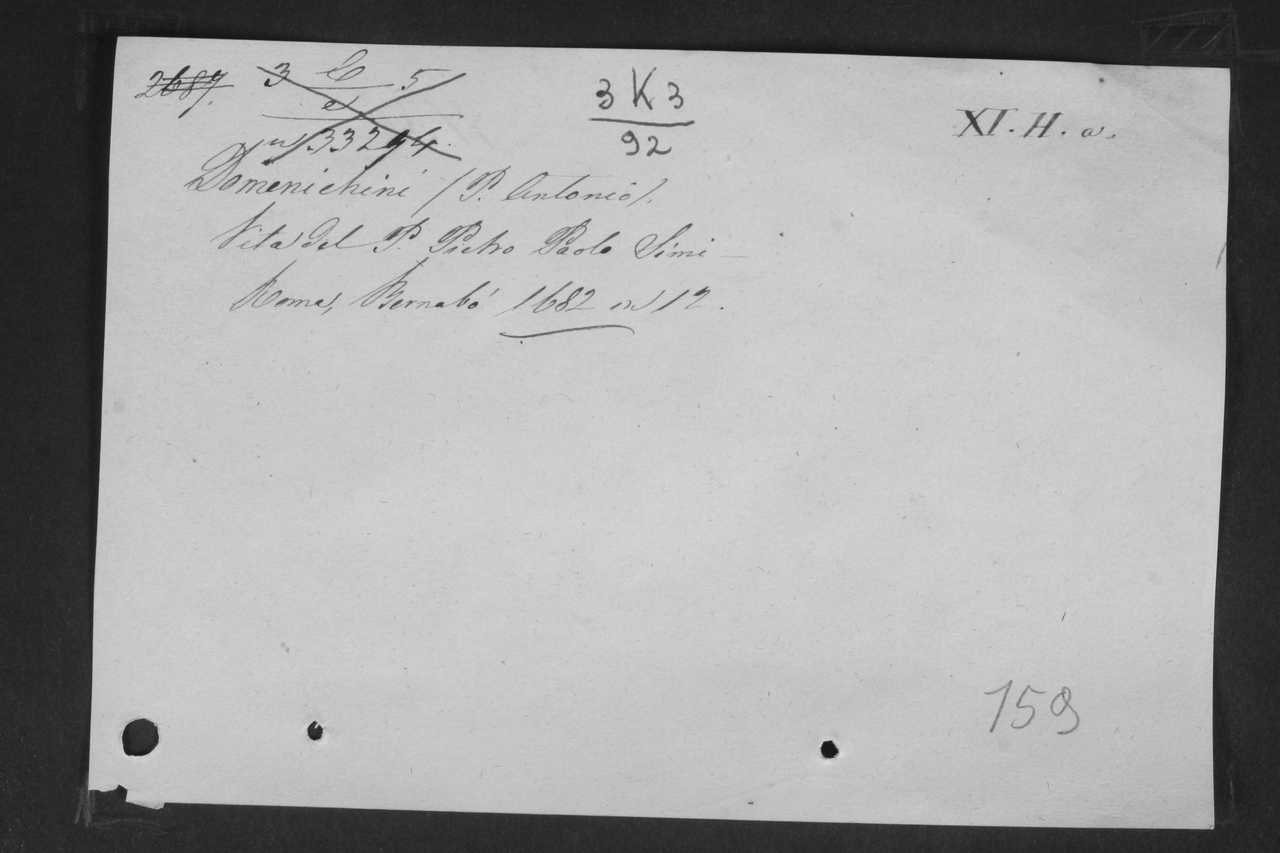 2687.
3 C 5
e
n 33294.
3 K 3
92
XI. H. a.
Domenichini (P. Antonio).
Vita del P. Pietro Paolo Simi –
Roma, Bernabó 1682 in 12.
159